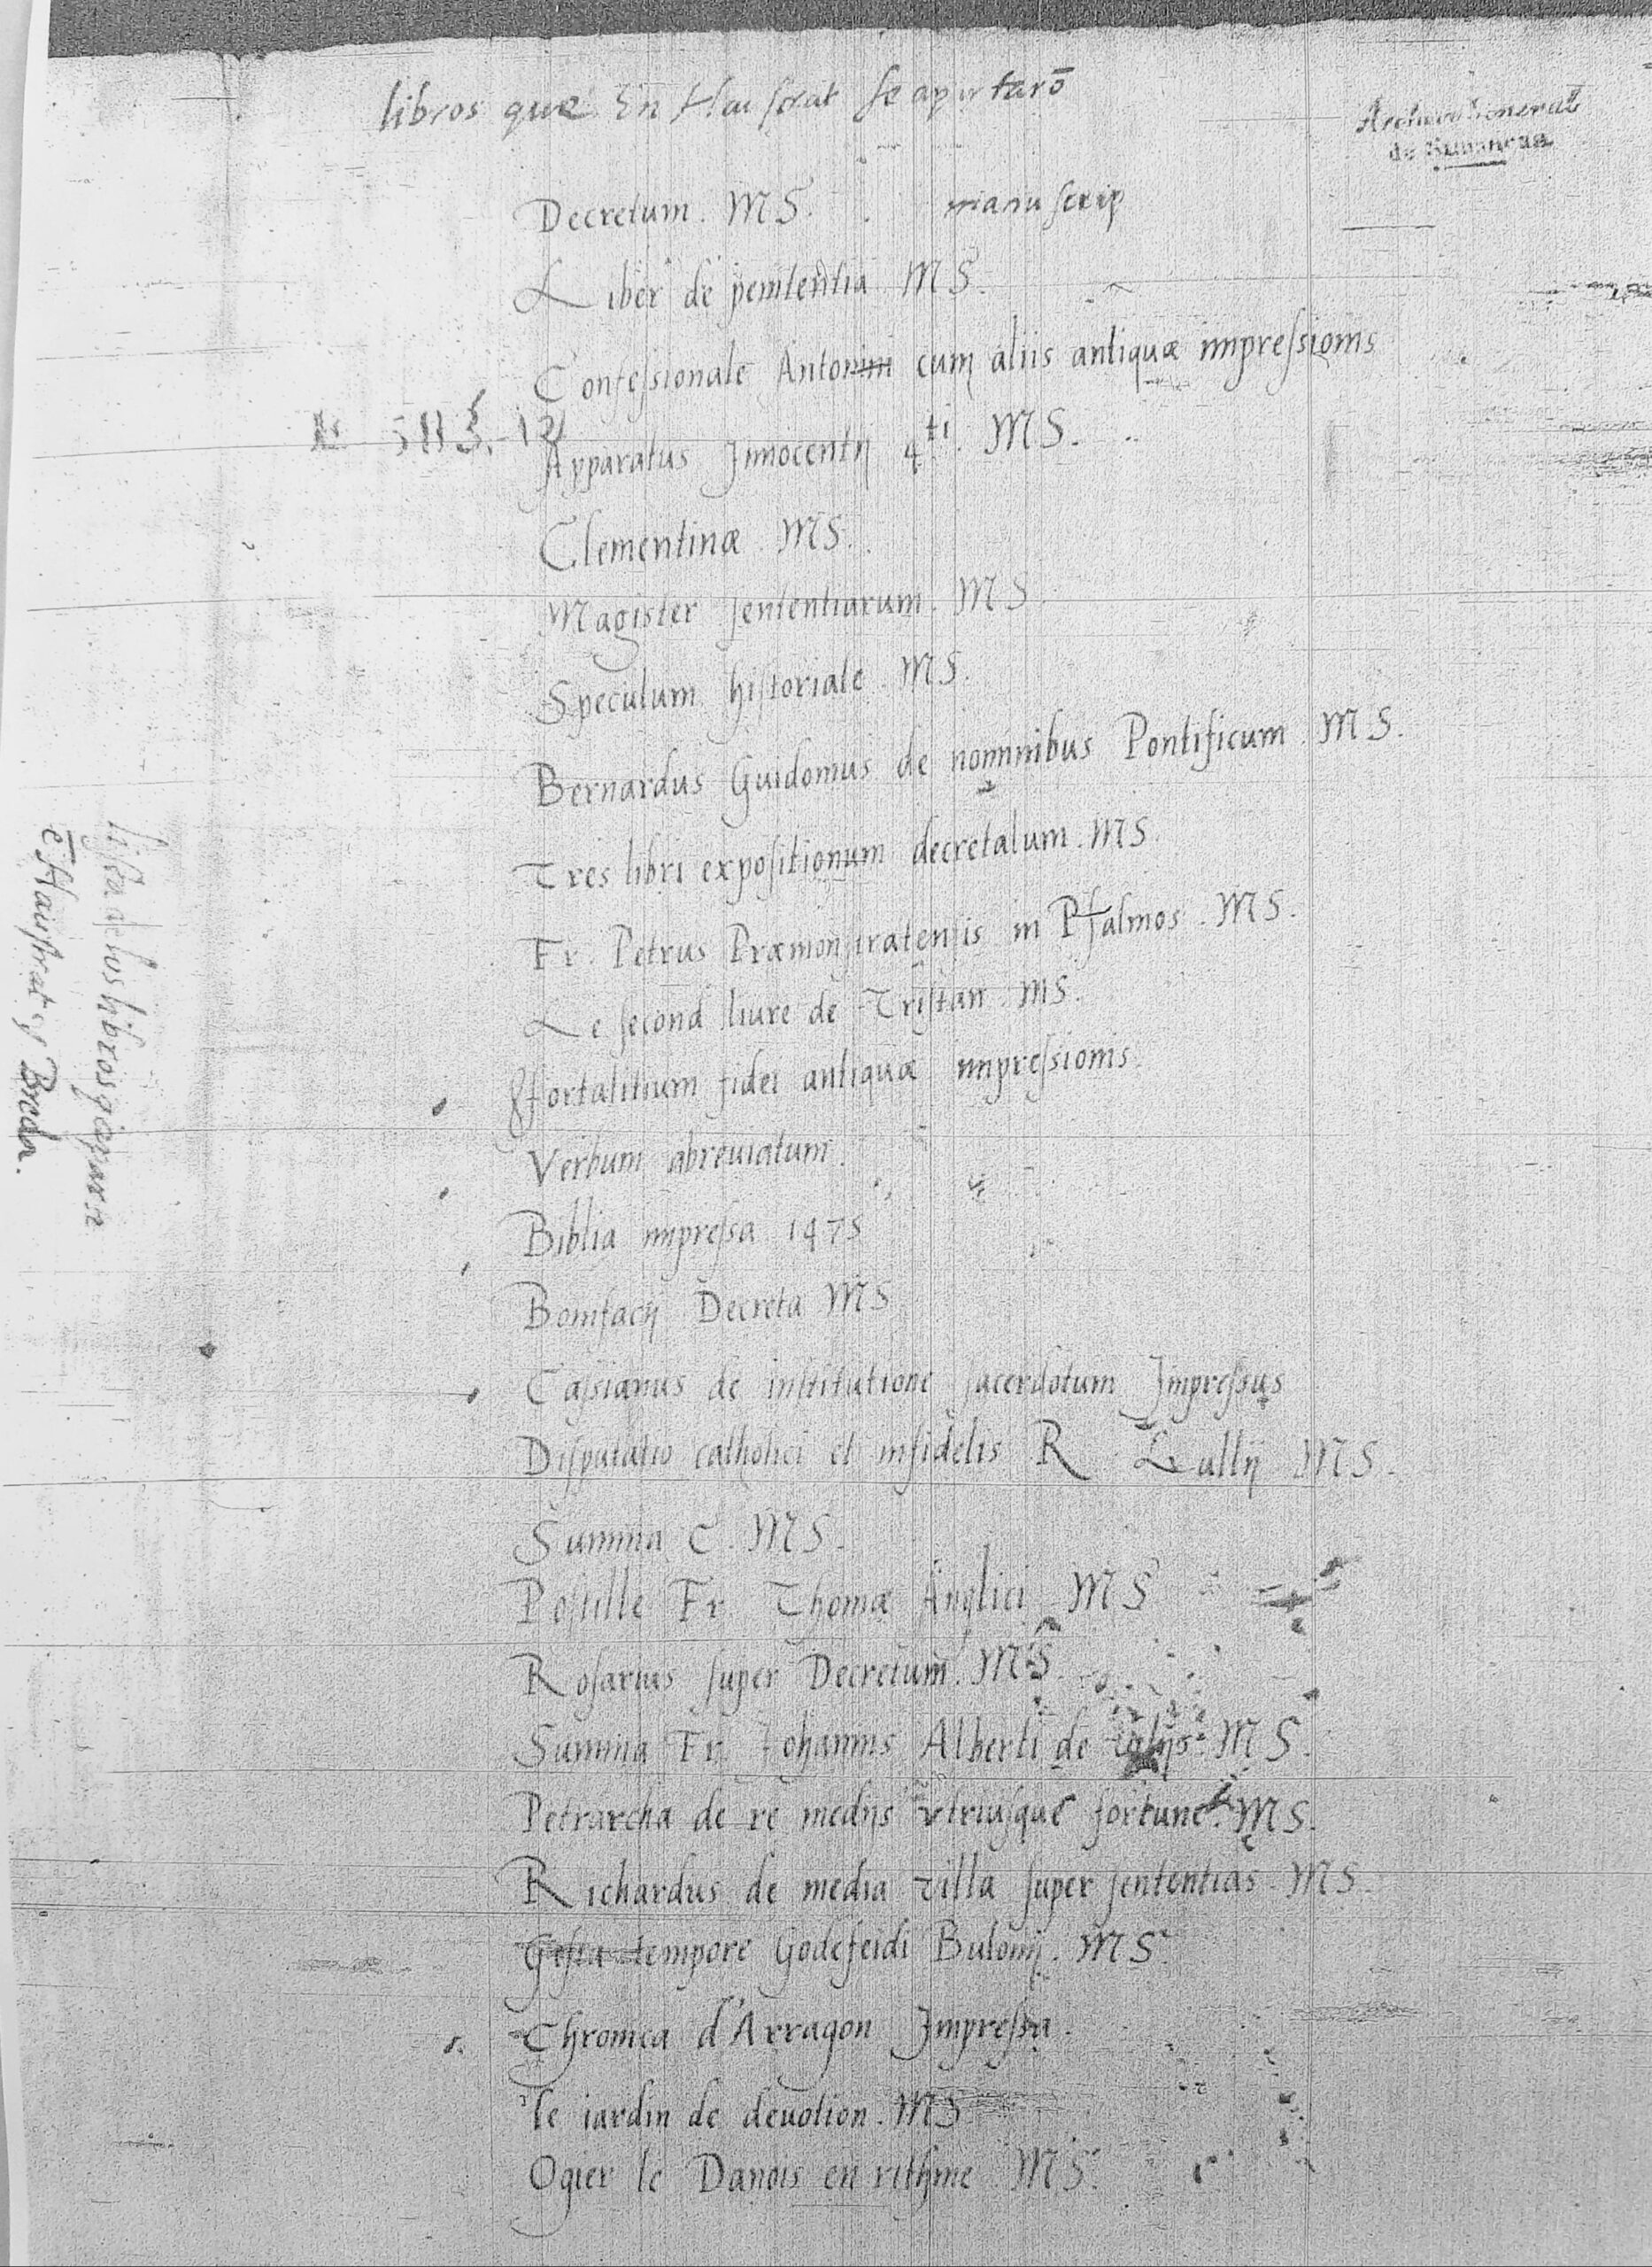 libros que En Hau strat se apartarõ
Archivo General
de Simancas
Decretum. MS. manuscrip
Liber de penitentia. MS.
Confessionale Antonini cum aliis antiquæ impressionis
Apparatus Innocentij 4ti. MS.
Clementinæ. MS.
Magister sententiarum. MS
Speculum historiale. MS.
Bernardus Guidonius de nominibus Pontificum. MS.
Tres libri expositionum decretalum. MS.
Fr. Petrus Præmonstratensis in Psalmos. MS.
Le second liure de Tristan. MS.
ffortalitium fidei antiquæ impressionis.
Verbum abreuiatum.
Biblia impressa 1475
Bonifacij Decreta MS
Cassianus de institutione sacerdotum Impressus
Disputatio catholici et infidelis R Lullij MS.
Summa C. MS.
Postille Fr. Thomæ Anglici MS
Rosarius super Decretum. MS.
Summa Fr. Johannis Alberti de MS.
Petrarcha de re medijs vtriusque fortune. MS.
Richardus de media villa super sententias. MS.
Gesta tempore Godefeidi Bulonij. MS
Chronica d'Arragon Impressa.
le iardin de deuotion. MS
Ogier le Danois en rithme MS.
lista de los libros q aparte
ē Haustrat y Breda.